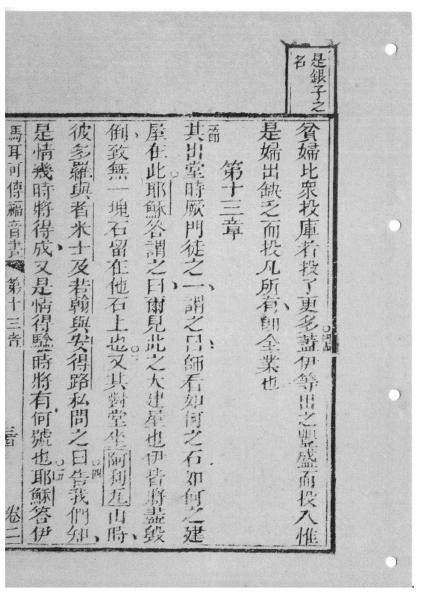 是銀子之
名
貧婦比衆投庫者投了更多蓋伊等出之豐盛而投入惟
是婦出缺乏而投凡所有即全業也
第十三章
其出堂時厥門徒之一謂之曰師看如何之石如何之建
屋在此耶穌答謂之曰爾見此之大建屋也伊皆將盡毀
倒致無一塊石留在他石上也又其對堂坐阿利瓦山時
彼多羅與者米士及若翰與安得路私問之曰告我們知
是情幾時將得成又是情得驗時將有何號也耶穌答伊
馬耳可傳福音書 第十三章 卷二